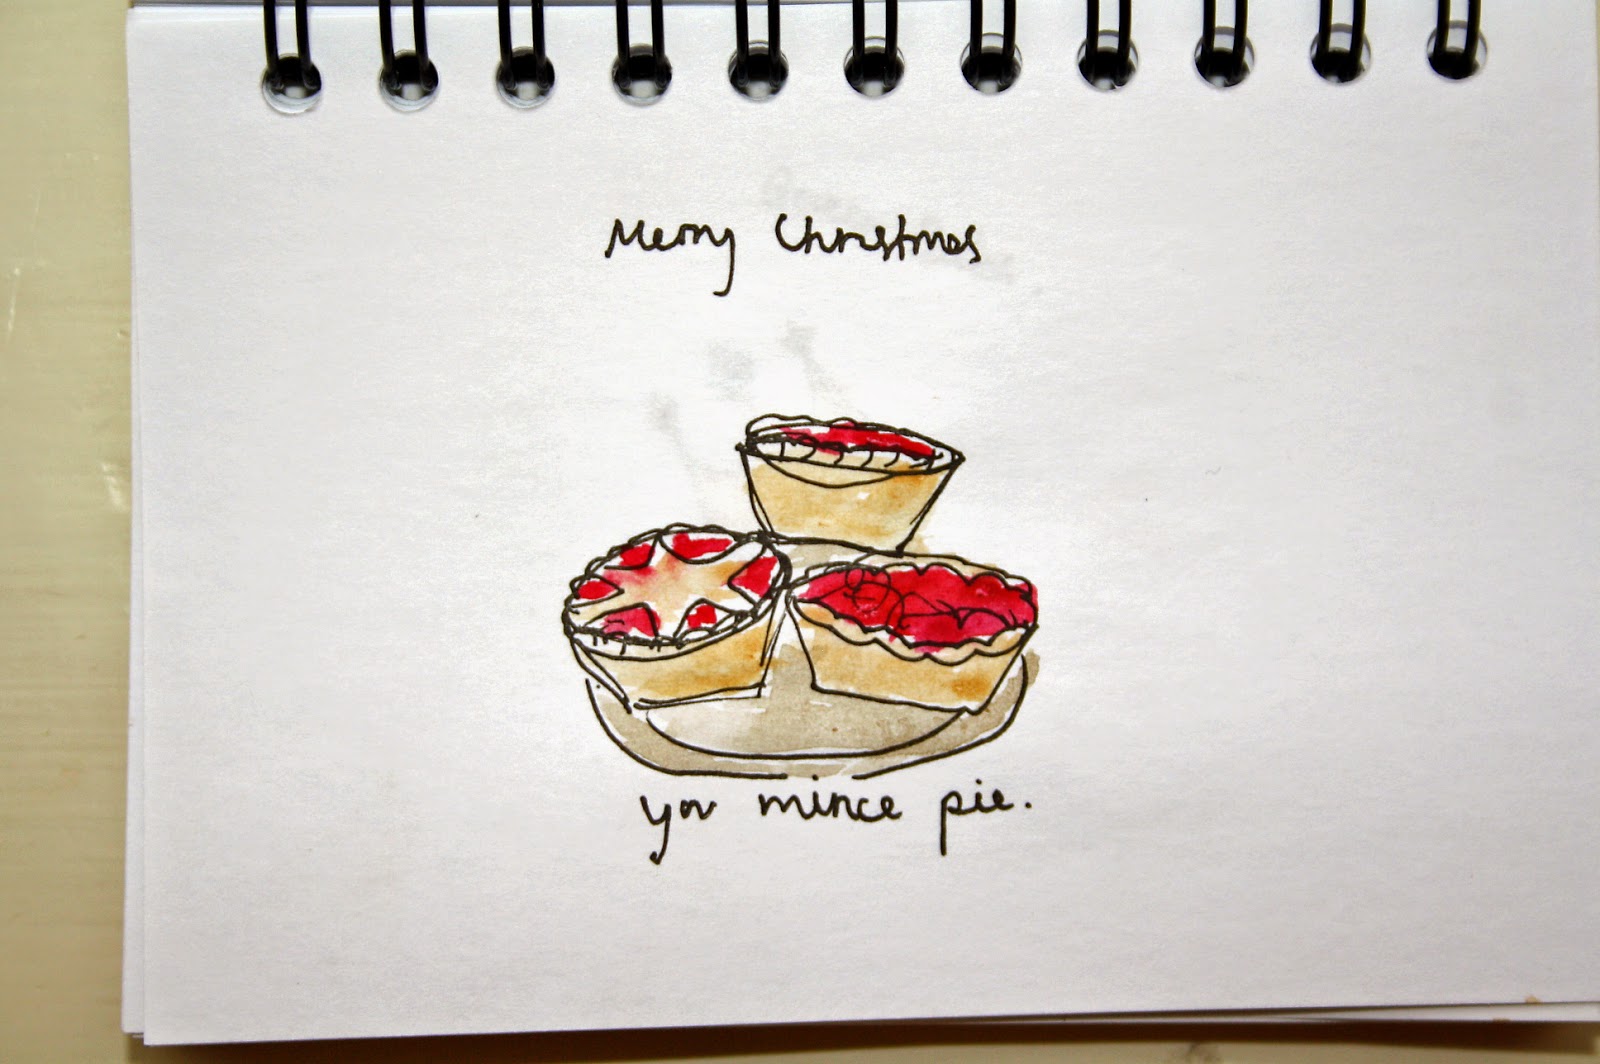 Merry Christmas
you mince pie.